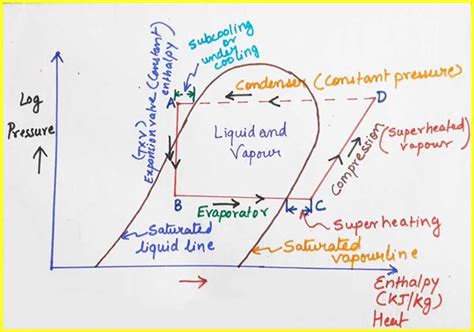 subcooling or
under
cooling
(TXV)
Expansion valve (Constant
enthalpy)
Condenser (Constant pressure)
A
D
Log
Pressure
Liquid and
Vapour
Compression
(Superheated
vapour)
B
Evaporator
C
Superheating
Saturated
liquid line
Saturated
vapourline
Enthalpy
(KJ/kg)
Heat